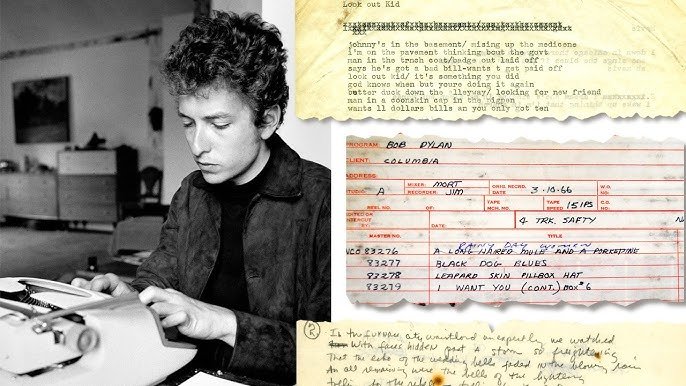 Look out Kid
Johnny's in the basement/ mixing up the medicene
i'm on the pavement thinking bout the govt
man in the trnch coat/badge out laid off
says he's got a bad bill-wants t get paid off
look out kid/ it's something you did
god knows when but youre doing it again
better duck down the alleyway/ looking for new friend
man in a coonskin cap in the pigpen
wants ll dollars bills an you only got ten
PROGRAM BOB DYLAN
CLIENT: COLUMBIA
ADDRESS
STUDIO: A
MIXER: MORT
RECORDER: JIM
ORIG. RECRD. DATE 3-10-66
W.O. NO.
REEL NO.
OF:
TAPE MCH. NO.
TAPE SPEED 15 IPS
C.O. NO.
EDITED OR INTERCUT BY
4 TRK. SAFTY
MASTER NO.
TITLE
RAINY DAY WOMEN
NCO 83276 A LONG HAIRED MULE AND A PORKEPINE
83277 BLACK DOG BLUES
83278 LEAPARD SKIN PILLBOX HAT
83279 I WANT YOU (CONT.) BOX #6
2
In the city unexpectedly we watched
With faces hidden past a storm so frightening
That the echo of the wedding bells faded in the blowing rain
An all remaining were the bells of the lightening